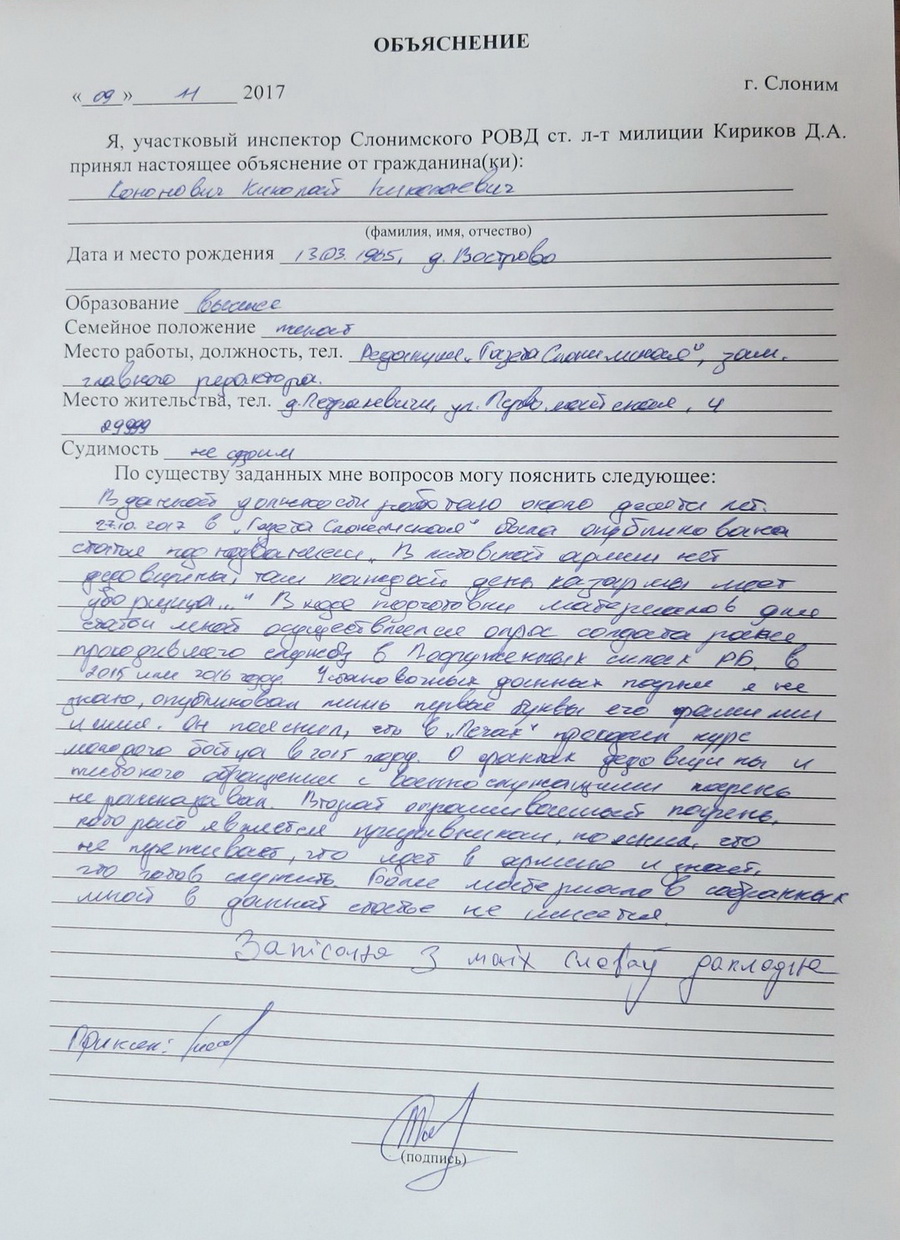 ОБЪЯСНЕНИЕ
« 09 » 11 2017
г. Слоним
Я, участковый инспектор Слонимского РОВД ст. л-т милиции Кириков Д.А.
принял настоящее объяснение от гражданина(ки):
Кононович Николай Николаевич
(фамилия, имя, отчество)
Дата и место рождения 13.03. д. Вострово
Образование высшее
Семейное положение женат
Место работы, должность, тел. Редакция „Газета Слонимская“, зам.
главного редактора.
Место жительства, тел. д. Петралевичи, ул. Первомайская, 4
29999
Судимость не судим
По существу заданных мне вопросов могу пояснить следующее:
В данной должности работаю около десяти лет.
27.10.2017 в „Газета Слонимская“ была опубликована
статья под названием „В литовской армии нет
дедовщины, там каждый день казармы моет
уборщица...“ В ходе подготовки материалов для
статьи мной осуществлялся опрос солдата ранее
проходившего службу в Вооруженных силах РБ. в
2015 или 2016 году. Установочных данных парня я не
знаю, опубликовал лишь первые буквы его фамилии
и имя. Он пояснил, что в „Печах“ проходил курс
молодого бойца в 2015 году. О фактах дедовщины и
обращения с военнослужащими парень
не рассказывал. Второй опрашиваемый парень,
который является призывником, пояснил, что
не переживает, что идет в армию и знает,
что готов служить. Более материалов собранных
мной в данной статье не имеется.
Запісана з маіх словаў дакладна
(подпись)